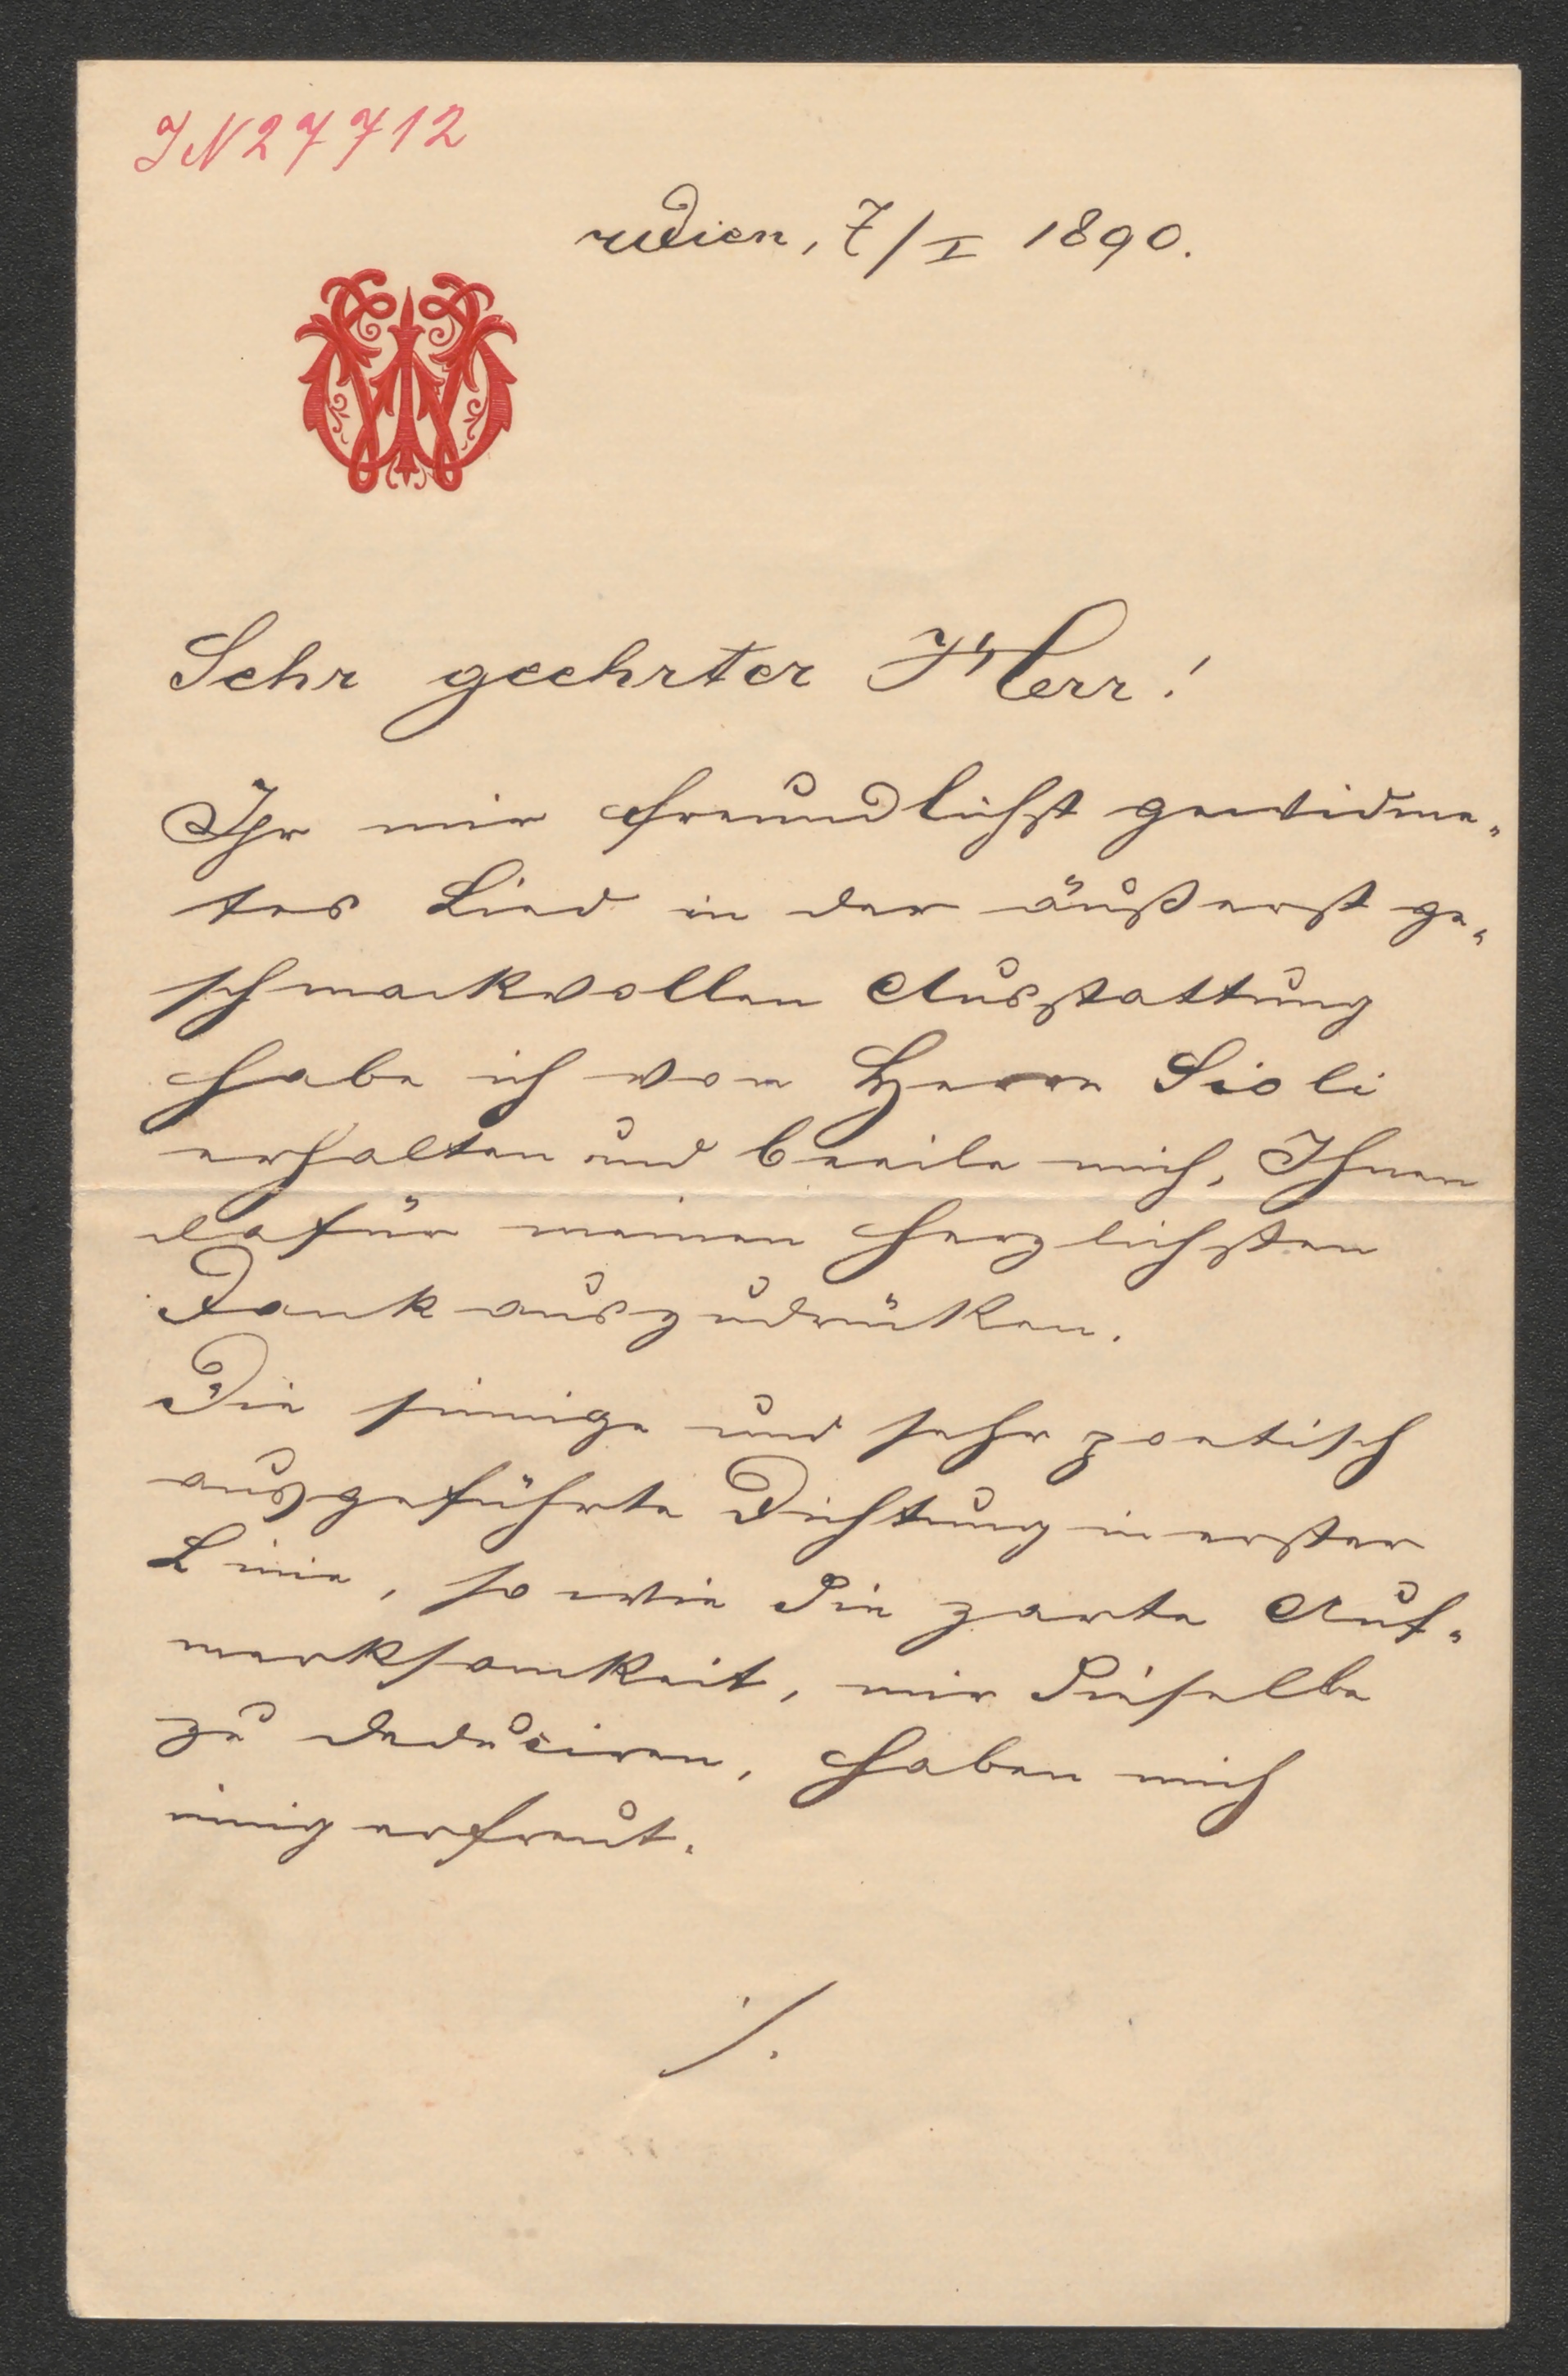 IN 27712
Wien, 7/I 1890.
Sehr geehrter Herr!
Ihr mir freundlichst gewidme-
tes Lied in der äußerst ge-
schmackvollen Ausstattung
habe ich von Herrn Sioli
erhalten und beeile mich, Ihnen
dafür meinen herzlichsten
Dank auszudrücken.
Die sinnige und sehr poetisch
ausgeführte Dichtung in erster
Linie, so wie die zarte Auf-
merksamkeit, mir dieselbe
zu deduciren, haben mich
innig erfreut.
./.